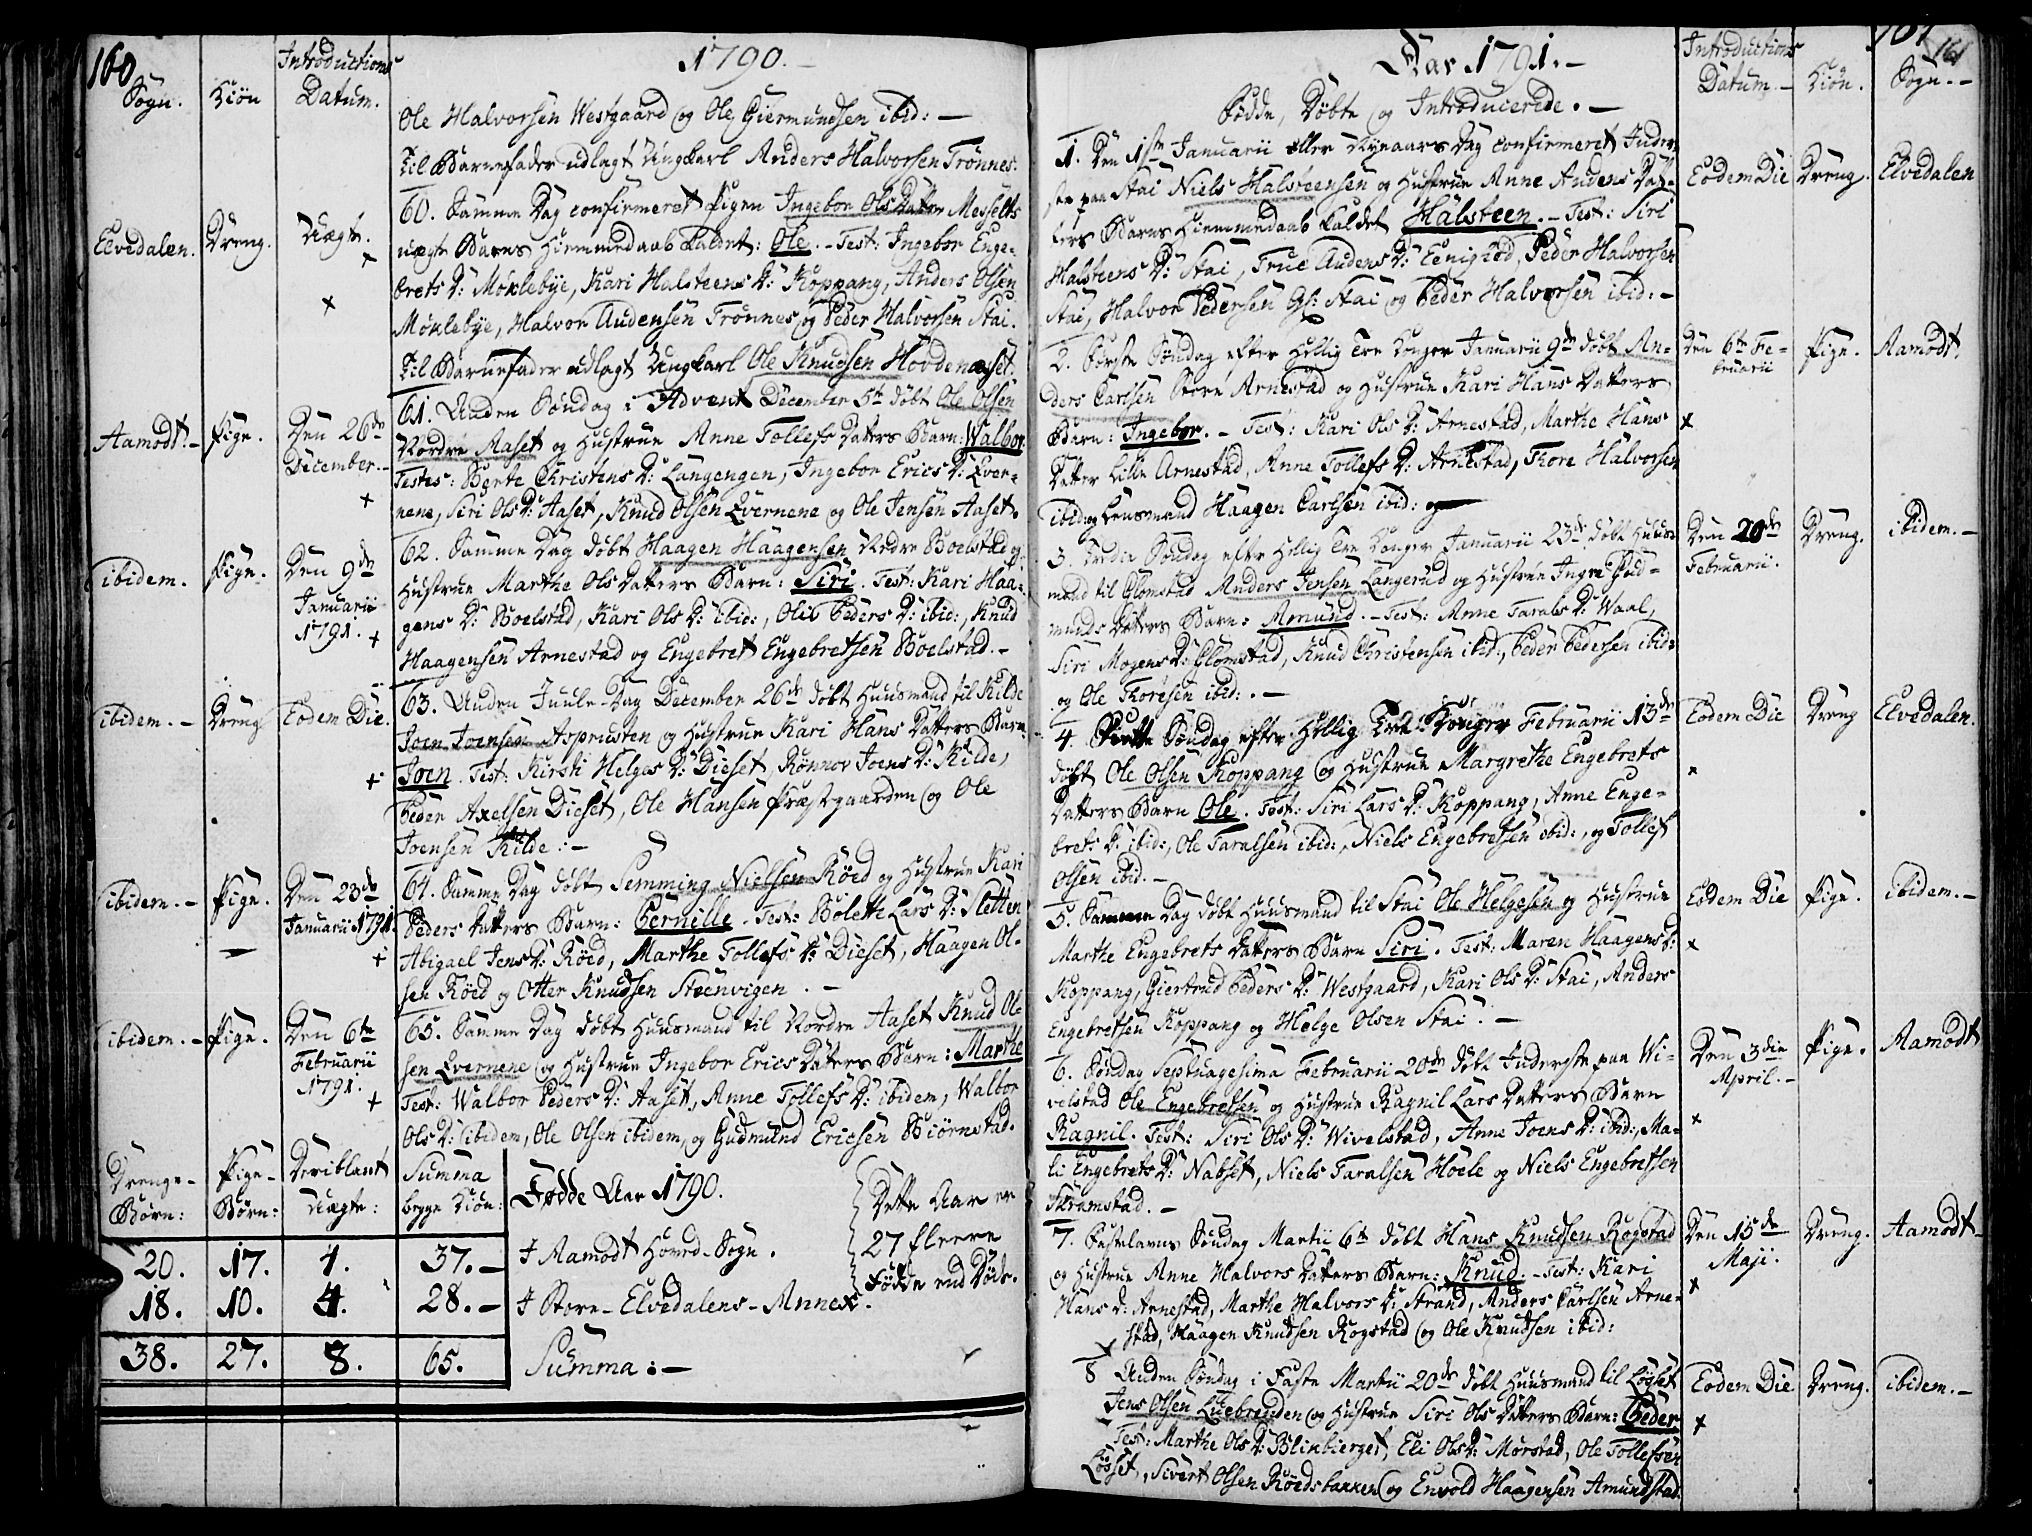 160
Sogn. Kiön Introductions Datum.
1790.
Ole Halvorsen Westgaard og Ole Giermundsen ibid: —
Til Barnefader udlagt Ungkarl Anders Halvorsen Trönnes.
60. Samme Dag confirmeret Pigen Ingebor Ols Datter Messelts
Elvedalen. Dreng. Uægte.
uægte Barns Hiemmedaab kaldet: Ole. - Test: Ingebor Enge-
brets D: Möklebye, Kari Halsteens D: Koppang, Anders Olsen
Möklebye, Halvor Audensen Trönnes og Peder Halvorsen Stai.
Til Barnefader udlagt Ungkarl Ole Knudsen Hovdenæset.
61. Anden Söndag i Advent December 5te döbt Ole Olsen
Aamodt. - Pige. Den 26de December. -
Nordre Aaset og Hustrue Anne Tollefs Datters Barn: Walbor.
Testes: Berte Christens D: Langengen, Ingebor Erics D: Ever-
nene, Siri Ols D: Aaset, Knud Olsen Evernene og Ole Jensen Aaset.
62. Samme Dag döbt Haagen Haagensen Nordre Boelstad og
ibidem. Pige. Den 9de Januarii 1791.
Hustrue Marthe Ols Datters Barn: Siri. Test: Kari Haa-
gens D: Boelstad, Kari Ols D: ibid:, Oliv Peders D: ibid:, Knud
Haagensen Arnestad og Engebret Engebretsen Boelstad. -
63. Anden Juule-Dag December 26de döbt Huusmand til Kilde
ibidem. - Dreng Eodem Die.
Joen Joensen Asprusten og Hustrue Kari Hans Datters Barn
Joen. Test: Kirsti Helges D: Dieset, Rönnov Joens D: Kilde,
Peder Axelsen Dieset, Ole Hansen Præstgaarden og Ole
Joensen Kilde: -
64. Samme Dag döbt Semming Nielsen Röed og Hustrue Kari
ibidem. - Pige. Den 23de Januarii 1791.
Peders Datters Barn: Pernille. Test: Bolette Lars D: Sletten
Abigael Jens D: Röed, Marthe Tollefs D: Dieset, Haagen Ol-
sen Röed og Otter Knudsen Steenvigen. -
65. Samme Dag döbt Huusmand til Nordre Aaset Knud Ole
ibidem. - Pige. Den 6te Februarii 1791.
sen Evernene og Hustrue Ingebor Erics Datters Barn: Marthe
Test: Walbor Peders D: Aaset, Anne Tollefs D: ibidem, Walbor
Ols D: ibidem, Ole Olsen ibidem, og Gudmund Ericsen Biörnstad.
Drenge-Börn: Pige-Börn: Deriblant Uægte: Summa begge Kiön:
Födde Aar 1790.
Dette Aar er
27 fleere
Födde end Döde.
20. 17. 4. 37. - I Aamodt Hoved-Sogn.
18. 10. 4. 28. - I Store-Elvedalens-Annex.
38. 27. 8. 65. Summa: -
161
Aar 1791. -
Introductions Datum. - Kiön. Sogn. -
Födde, Döbte og Introducerede. -
1. Den 1ste Januarii eller Nynaars Dag confirmeret Inder-
ste paa Stai Niels Halsteensen og Hustrue Anne Audens Dat-
Eodem Die Dreng. Elvedalen
ters Barns Hiemmedaab kaldet Halsteen. - Test: Siri
Halsteens D: Stai, True Audens D: Eenigröd, Peder Halvorsen
Stai, Halvor Pedersen Gs: Stai og Peder Halvorsen ibid: -
2. Förste Söndag efter Hellig Tre Konger Januarii 9de döbt An-
Den 6te Februarii Pige. Aamodt.
ders Carlsen Store Arnestad og Hustrue Kari Hans Datters
Barn: Ingebor. - Test: Kari Ols D: Arnestad, Marthe Hans
Datter Lille Arnestad, Anne Tollefs D: Arnestad, Thore Halvorsen
ibid: og Lensmand Haagen Carlsen ibid:
3. Tredie Söndag efter Hellig Tre Konger Januarii 23de döbt Huus-
Den 20de Februarii. Dreng. ibidem. -
mand til Glomstad Anders Jensen Langerud og Hustrue Ingre Gud-
munds Datters Barn: Amund. - Test: Anne Taralds D: Waal,
Siri Mogens D: Glomstad, Knud Christensen ibid:, Peder Pedersen ibid:
og Ole Thoresen ibid:. -
4. Siette Söndag efter Hellig Tre Konger Februarii 13de
Eodem Die Dreng Elvedalen.
döbt Ole Olsen Koppang og Hustrue Margrethe Engebrets
Datters Barn Ole. Test: Siri Lars D: Koppang, Anne Enge-
brets D: ibid:, Ole Taralsen ibid:, Niels Engebretsen ibid:, og Tollef
Olsen ibid. -
5. Samme Dag döbt Huusmand til Stai Ole Helgesen og Hustrue
Eodem Die Pige. ibidem. -
Marthe Engebrets Datters Barn Siri. Test: Maren Haagens D:
Koppang, Giertrud Peders D: Westgaard, Kari Ols D: Stai, Anders
Engebretsen Koppang og Helge Olsen Stai. -
6. Söndag Septuagesima Februarii 20de döbt Inderste paa Wi-
Den 3die April. - Pige. Aamodt
velstad Ole Engebretsen og Hustrue Ragnil Lars Datters Barn
Ragnil. Test: Siri Ols D: Wivelstad, Anne Joens D: ibid:, Ma-
li Engebrets D: Nabset, Niels Taralsen Hoele og Niels Engebretsen
Skramstad. -
7. Fastelavns Söndag Martii 6te döbt Hans Knudsen Rogstad
Den 15de Maji. Dreng. Aamodt -
og Hustrue Anne Halvors Datters Barn: Knud. - Test: Kari
Hans D: Arnestad, Marthe Halvors D: Strand, Anders Carlsen Arne-
stad, Haagen Knudsen Rogstad og Ole Knudsen ibid:
8 Anden Söndag i Faste Martii 20de döbt Huusmand til Lösset
Eodem Die Dreng. ibidem. -
Jens Olsen Luebrenden og Hustrue Siri Ols Datters Barn: Peder
Test: Marthe Ols D: Blinbierget, Eli Ols D: Mörstad, Ole Tollefsen
Lösset, Sivert Olsen Röedsbakken og Envold Haagensen Amundstad.